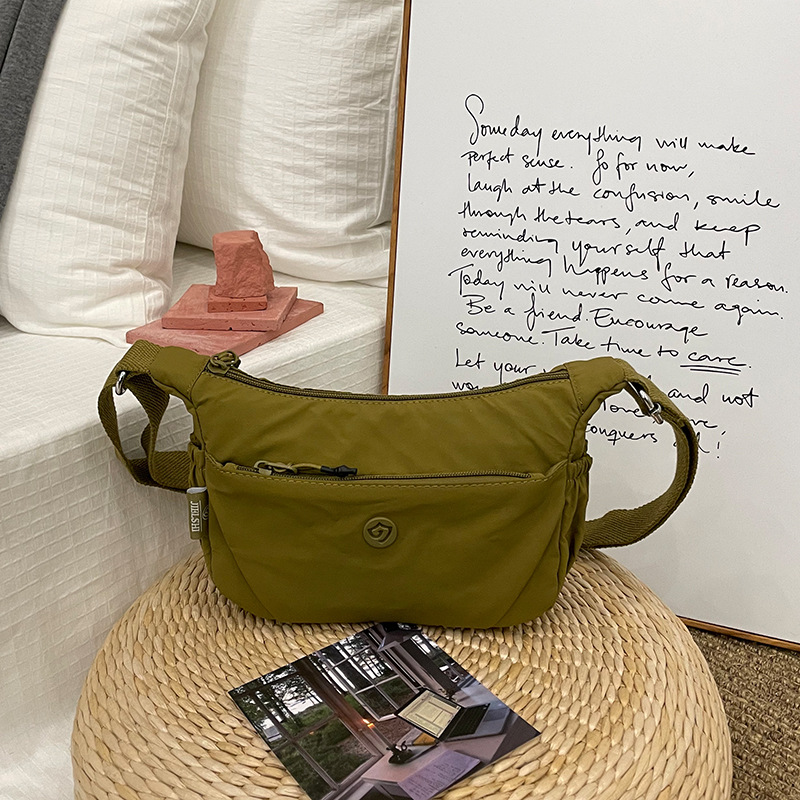 Someday everything will make
perfect sense. So for now,
laugh at the confusion, smile
through the tears, and keep
reminding yourself that
everything happens for a reason.
Today will never come again.
Be a friend. Encourage
someone. Take time to care.
Let your
and not
Love
conquers all!
JIELSHI